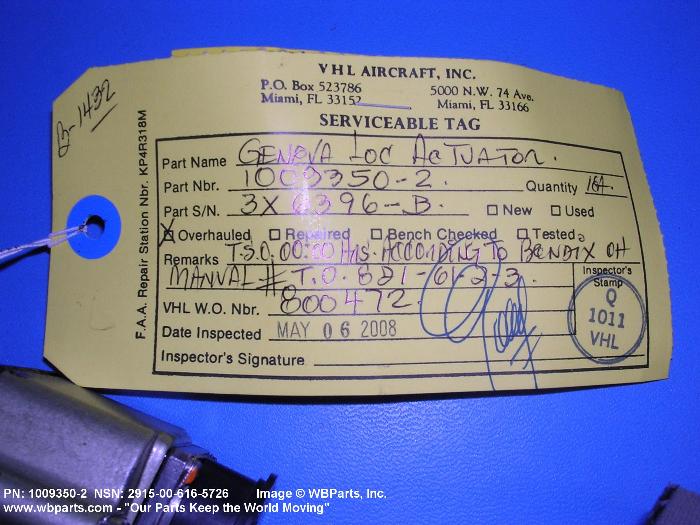 VHL AIRCRAFT, INC.
P.O. Box 523786 5000 N.W. 74 Ave.
Miami, FL 33152 Miami, FL 33166
SERVICEABLE TAG
B-1432
F.A.A. Repair Station Nbr. KP4R318M
Part Name GENEVA LOC ACTUATOR.
Part Nbr. 1009350-2. Quantity 1EA.
Part S/N. 3X 6396-B. New Used
X Overhauled Repaired Bench Checked Tested
Remarks T.S.O. 00:00 Hrs. ACCORDING TO BENDIX OH
MANUAL # T.O. 8D1-6-2-3.
VHL W.O. Nbr. 800472
Date Inspected MAY 06 2008
Inspector's Signature
Inspector's
Stamp
Q
1011
VHL
PN: 1009350-2 NSN: 2915-00-616-5726 Image © WBParts, Inc.
www.wbparts.com - "Our Parts Keep the World Moving"